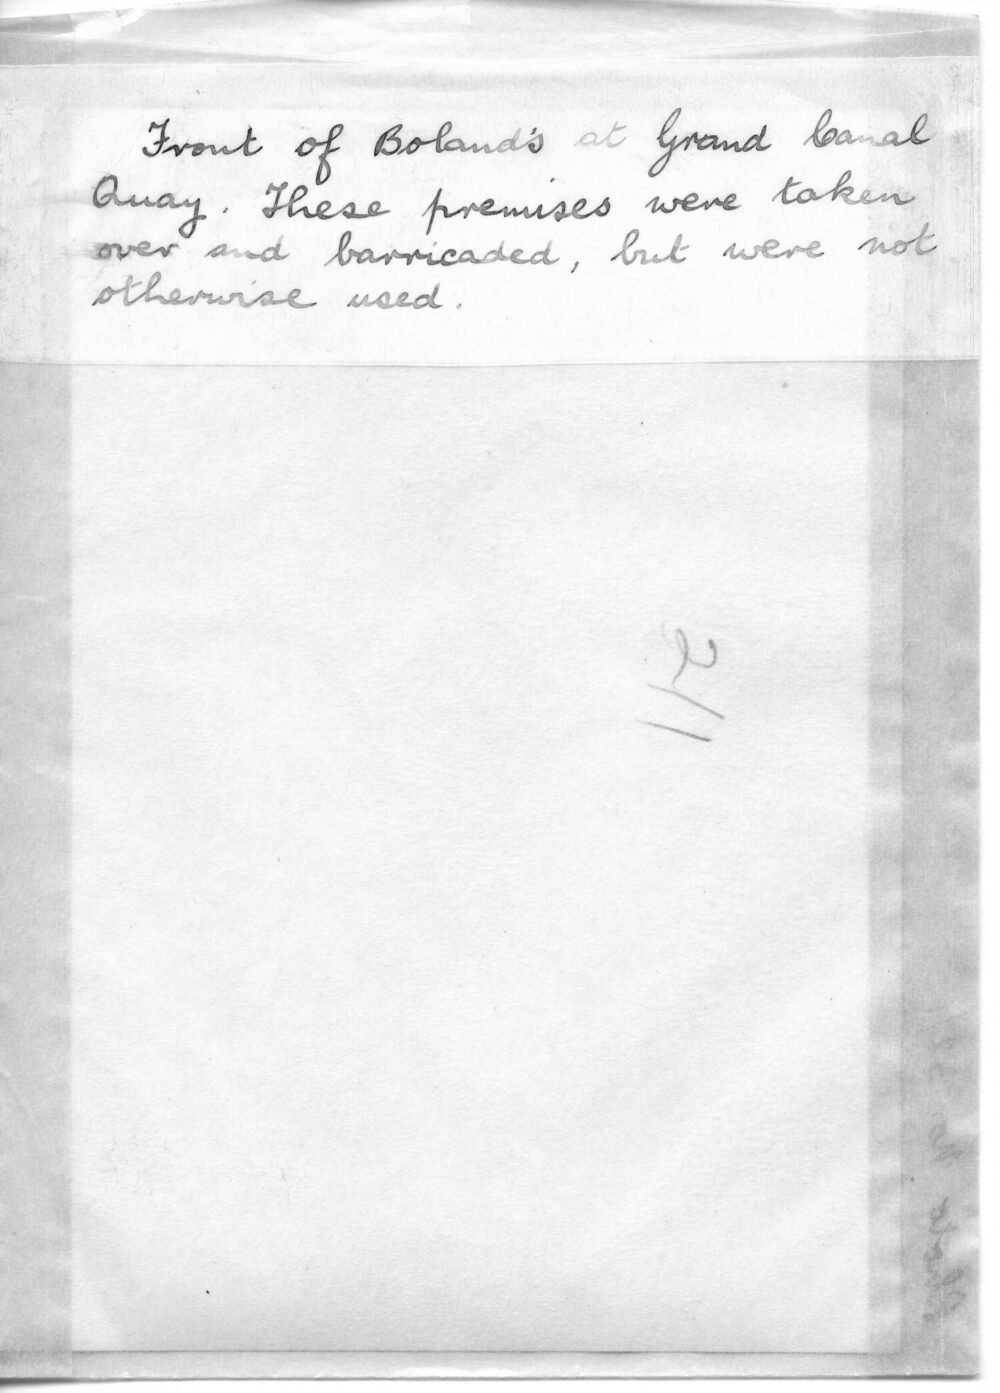 Front of Boland's at Grand Canal
Quay. These premises were taken
over and barricaded, but were not
otherwise used.
211
Photo No